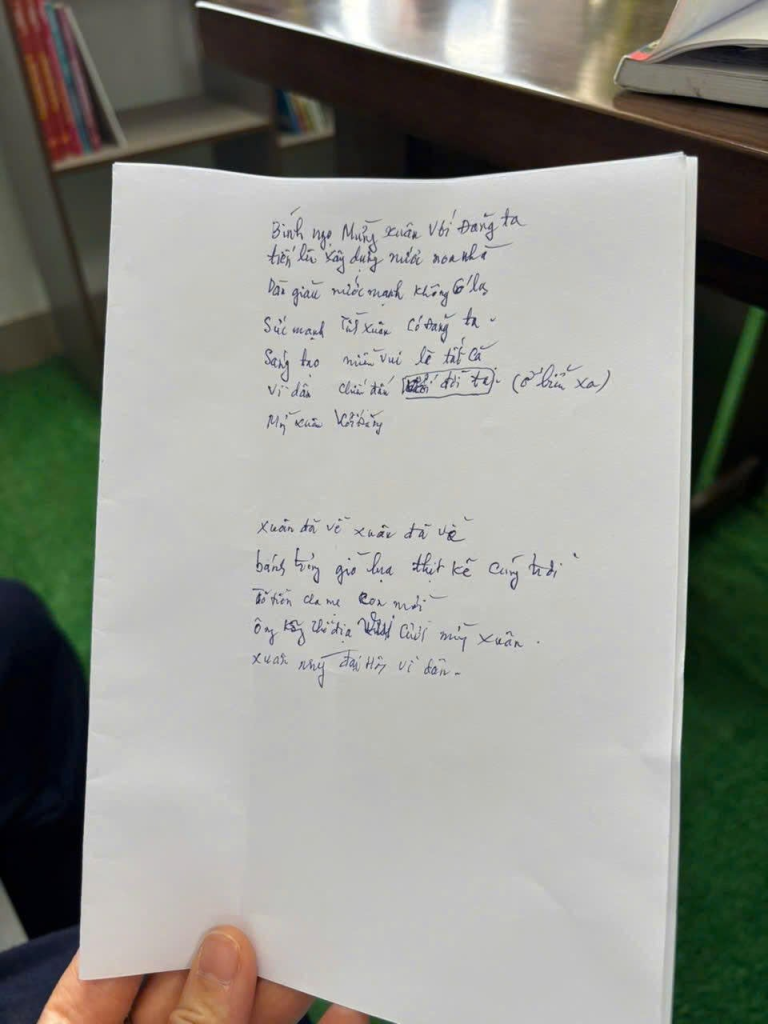 Bính ngọ Mừng xuân Với Đảng ta
tiến lên xây dựng nước non nhà
Dân giàu nước mạnh không
Sức mạnh xuân Có Đảng ta.
Sáng tạo niềm vui lẽ tất cả
Vì dân chiến đấu đời ta. (ở biển xa)
Mừng xuân Với Đảng
xuân đã về xuân đã về
bánh giò lụa thịt kế cúng trời
Tổ tiên cha mẹ con mời
ông thổ địa cười mừng xuân.
xuân đại Hội vì dân.